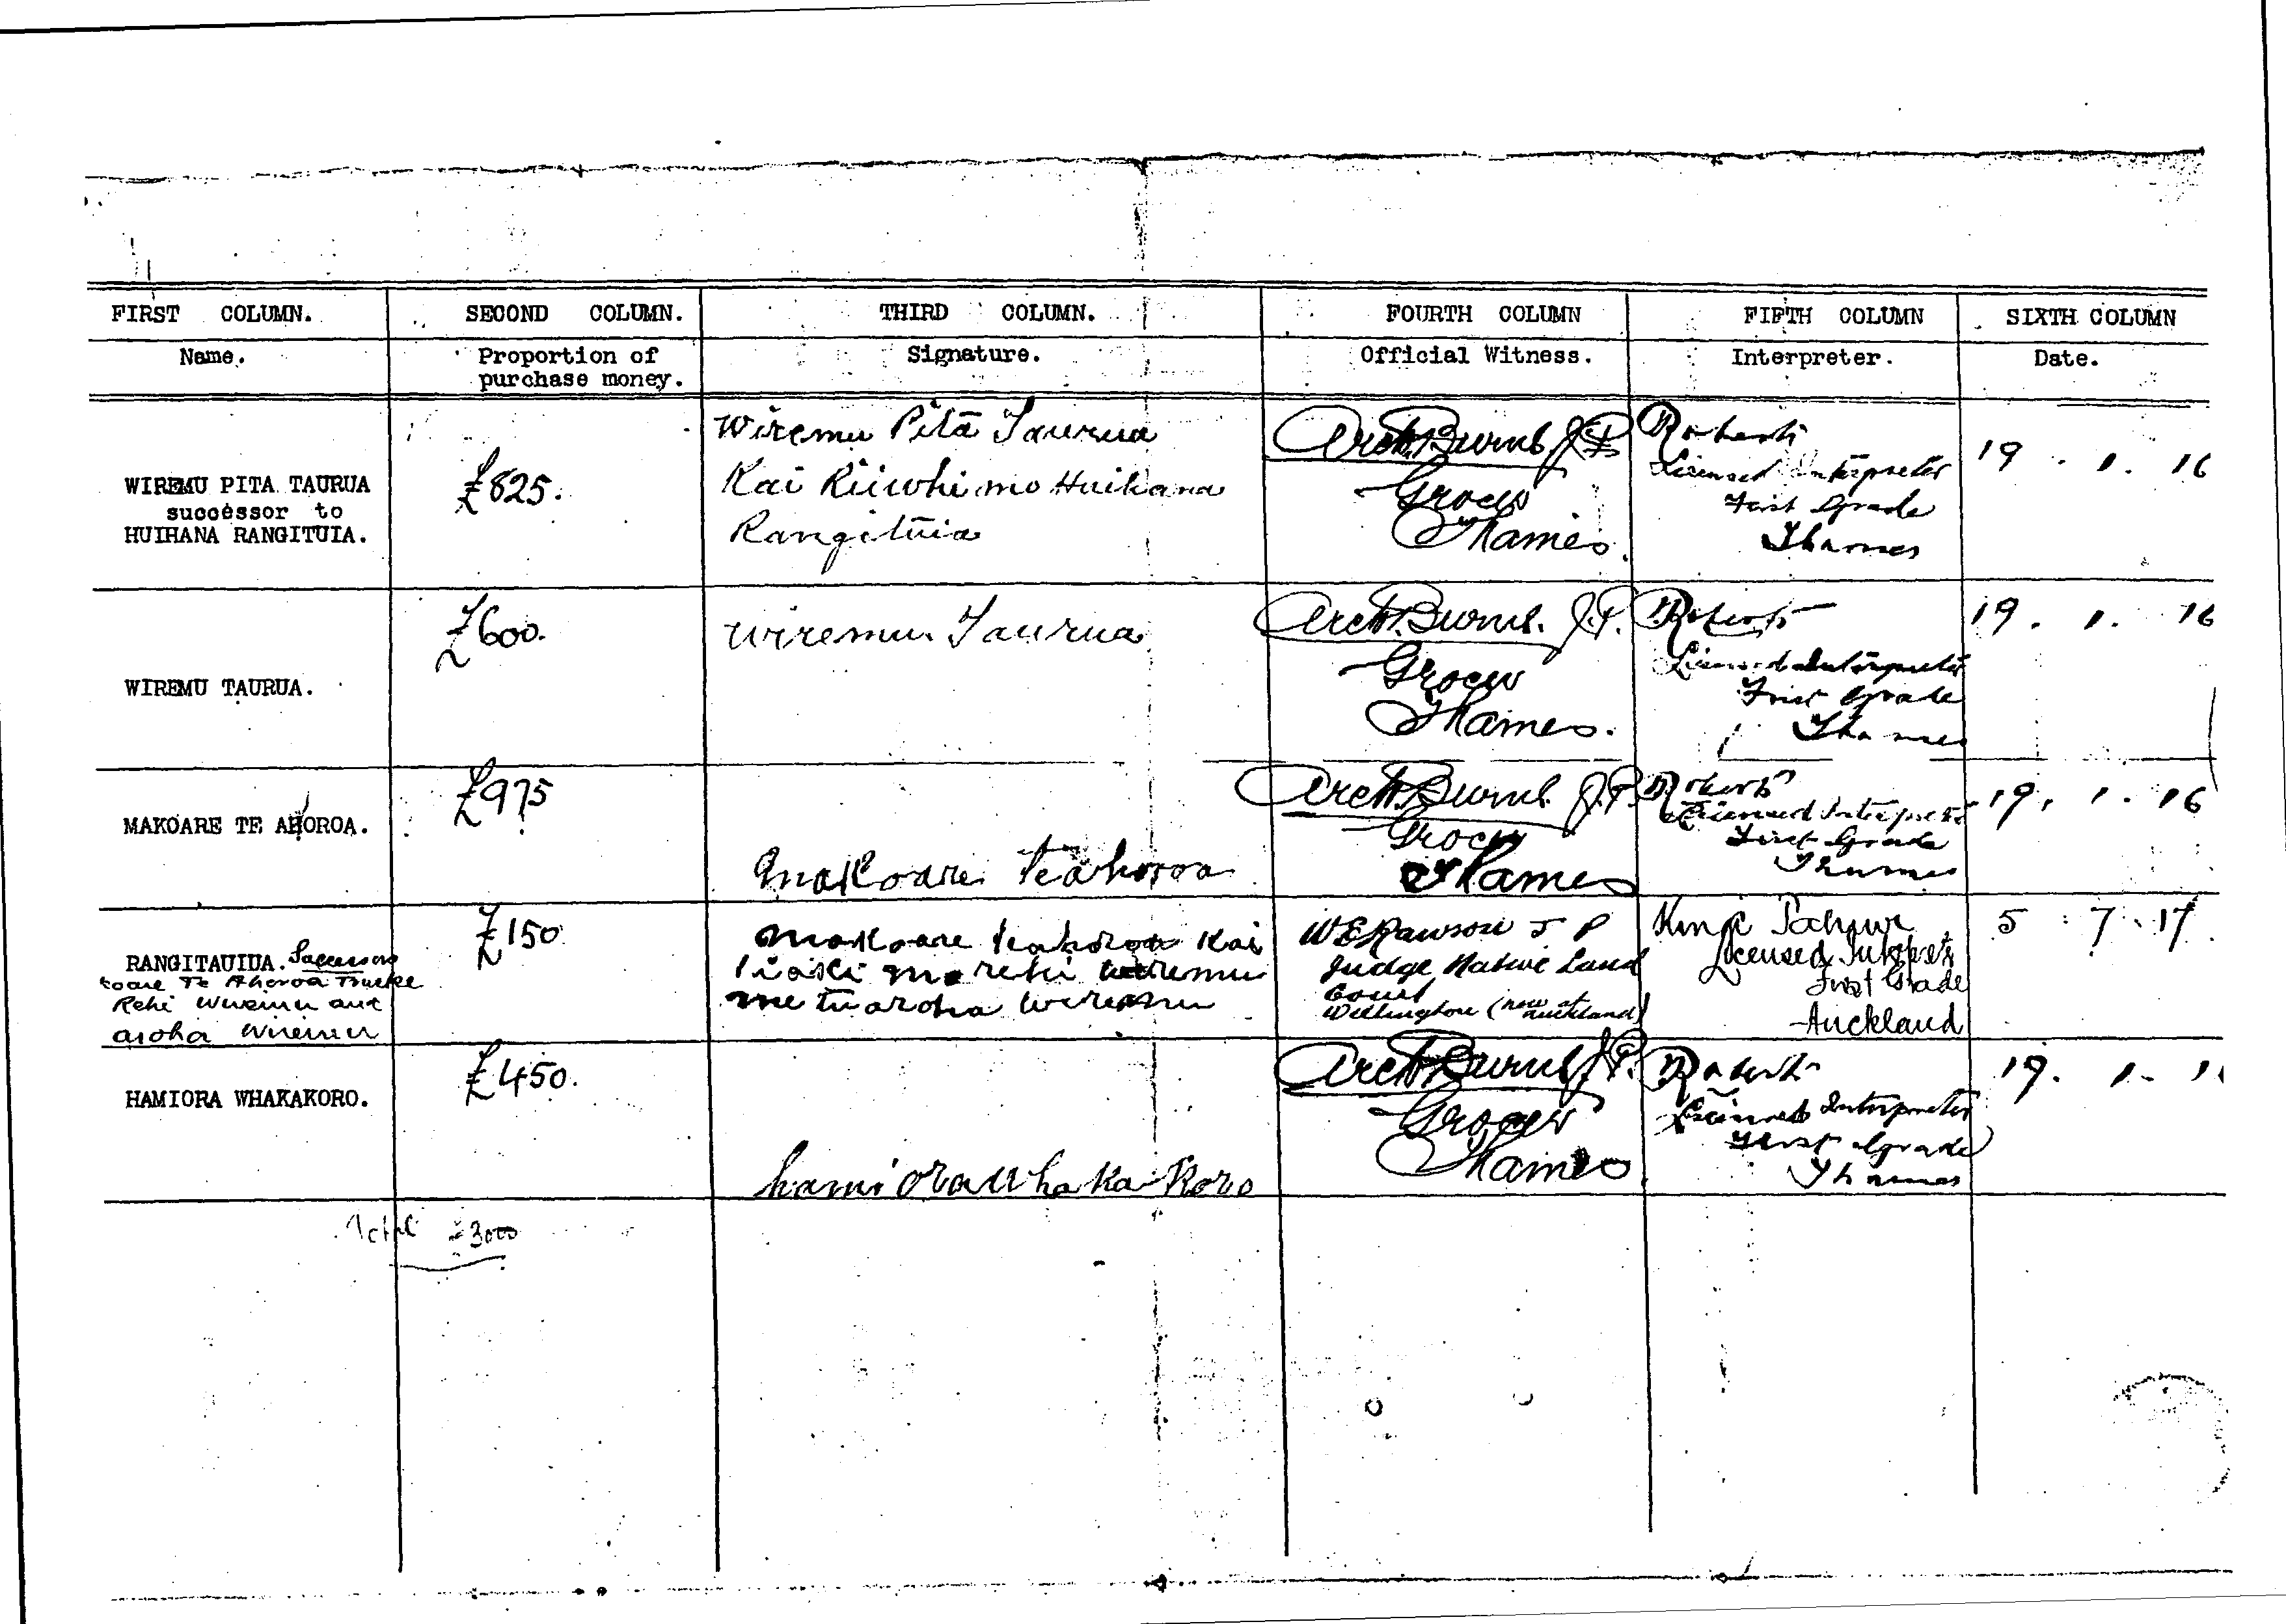 FIRST COLUMN. SECOND COLUMN. THIRD COLUMN. FOURTH COLUMN FIFTH COLUMN SIXTH COLUMN
Name. Proportion of Signature. Official Witness. Interpreter. Date.
purchase money.
WIREMU PITA TAURUA
successor to
HUIHANA RANGITUIA.
£825.
Wiremu Pita Taurua
Kai Riiwhi mo Huihana
Rangituia
Arch. Burns J.P.
Grocer
Thames.
Roberts
Licensed Interpreter
First Grade
Thames
19 . 1 . 16
WIREMU TAURUA.
£600.
Wiremu Taurua
Arch. Burns. J.P.
Grocer
Thames.
Roberts
Licensed Interpreter
First Grade
Thames
19 . 1 . 16
MAKOARE TE AHOROA.
£975
Makoare teahoroa
Arch. Burns. J.P.
Grocer
Thames
Roberts
Licensed Interpreter
First Grade
Thames
19 . 1 . 16
RANGITAUIUA.
Te Ahoroa
Rehi Wiremu and
aroha Wiremu
£150
Makoare teahoroa Kai
tiaki mo rehi wiremu
me tuaroha wiremu
W E Rawson J P
Judge Native Land
Court
Wellington (now at Auckland)
Licensed Interpreter
First Grade
Auckland
5 . 7 . 17
HAMIORA WHAKAKORO.
£450.
hamiora Whakakoro
Arch. Burns J.P.
Grocer
Thames
Roberts
Licensed Interpreter
First Grade
Thames
19 . 1 . 1
Total £3000